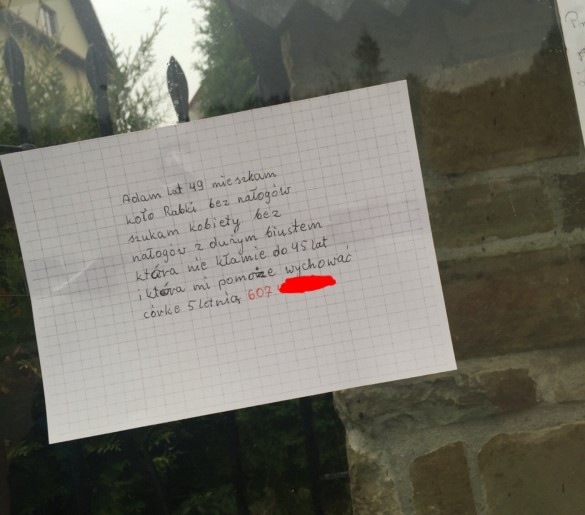 Adam lat 49 mieszkam
koło Rabki bez nałogów
szukam kobiety bez
nałogów z dużym biustem
która nie kłamie do 45 lat
i która mi pomoże wychować
córkę 5 letnią 607